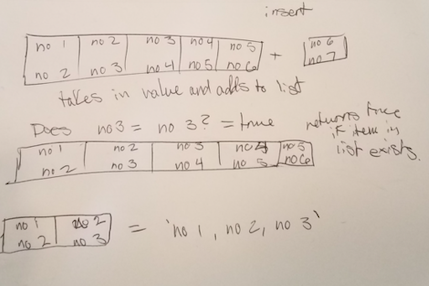 insert
no 1 no 2 no 3 no 4 no 5 + no 6
no 2 no 3 no 4 no 5 no 6 no 7
takes in value and adds to list
Does no 3 = no 3? = true
returns true
if item in
list exists.
no 1 no 2 no 3 no 4 no 5
no 2 no 3 no 4 no 5 no 6
no 1 no 2 = 'no 1, no 2, no 3'
no 2 no 3